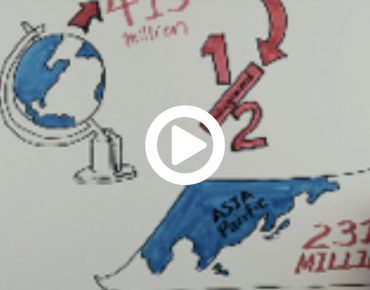 million
1
2
ASIA
Pacific
231
MILLIO